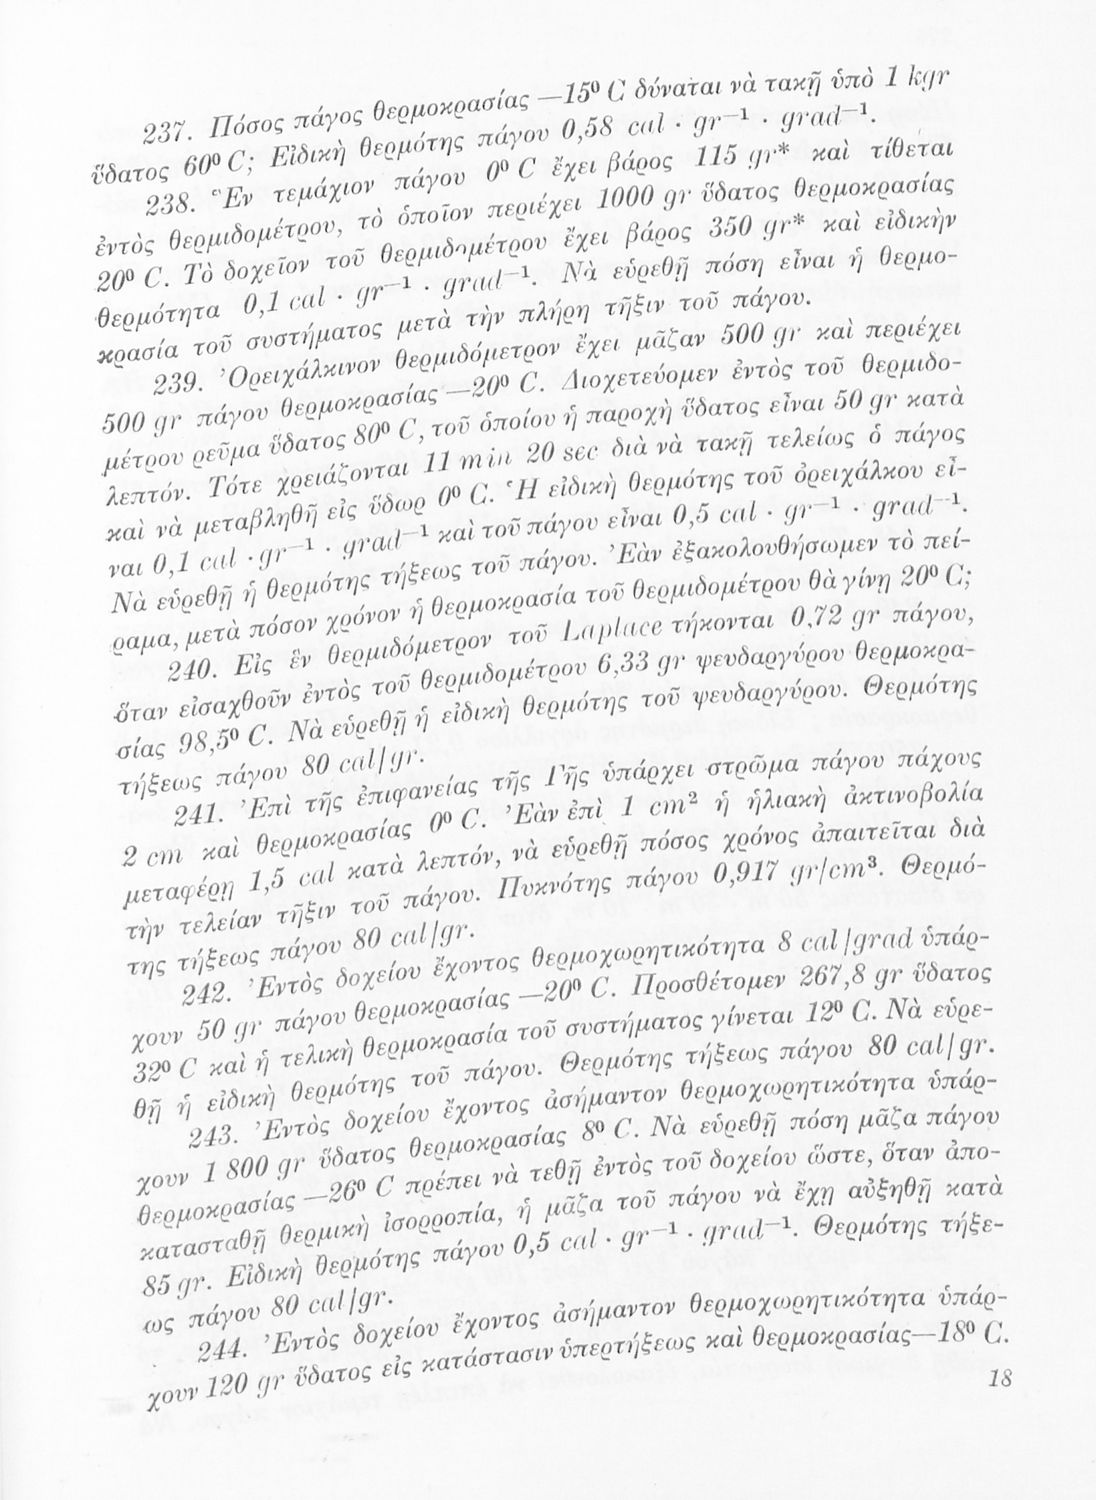 237. Πόσος πάγος θερμοκρασίας —15⁰ C δύναται νὰ τακῇ ὑπὸ 1 kgr
ὕδατος 60⁰ C; Εἰδικὴ θερμότης πάγου 0,58 cal · gr⁻¹ · grad⁻¹.
238. Ἓν τεμάχιον πάγου 0⁰ C ἔχει βάρος 115 gr* καὶ τίθεται
ἐντὸς θερμιδομέτρου, τὸ ὁποῖον περιέχει 1000 gr ὕδατος θερμοκρασίας
20⁰ C. Τὸ δοχεῖον τοῦ θερμιδομέτρου ἔχει βάρος 350 gr* καὶ εἰδικὴν
θερμότητα 0,1 cal · gr⁻¹ · grad⁻¹. Νὰ εὑρεθῇ πόση εἶναι ἡ θερμο-
κρασία τοῦ συστήματος μετὰ τὴν πλήρη τῆξιν τοῦ πάγου.
239. Ὀρειχάλκινον θερμιδόμετρον ἔχει μᾶζαν 500 gr καὶ περιέχει
500 gr πάγου θερμοκρασίας —20⁰ C. Διοχετεύομεν ἐντὸς τοῦ θερμιδο-
μέτρου ρεῦμα ὕδατος 80⁰ C, τοῦ ὁποίου ἡ παροχὴ ὕδατος εἶναι 50 gr κατὰ
λεπτόν. Τότε χρειάζονται 11 min 20 sec διὰ νὰ τακῇ τελείως ὁ πάγος
καὶ νὰ μεταβληθῇ εἰς ὕδωρ 0⁰ C. Ἡ εἰδικὴ θερμότης τοῦ ὀρειχάλκου εἶ-
ναι 0,1 cal · gr⁻¹ · grad⁻¹ καὶ τοῦ πάγου εἶναι 0,5 cal · gr⁻¹ · grad⁻¹.
Νὰ εὑρεθῇ ἡ θερμότης τήξεως τοῦ πάγου. Ἐὰν ἐξακολουθήσωμεν τὸ πεί-
ραμα, μετὰ πόσον χρόνον ἡ θερμοκρασία τοῦ θερμιδομέτρου θὰ γίνῃ 20⁰ C;
240. Εἰς ἓν θερμιδόμετρον τοῦ Laplace τήκονται 0,72 gr πάγου,
ὅταν εἰσαχθοῦν ἐντὸς τοῦ θερμιδομέτρου 6,33 gr ψευδαργύρου θερμοκρα-
σίας 98,5⁰ C. Νὰ εὑρεθῇ ἡ εἰδικὴ θερμότης τοῦ ψευδαργύρου. Θερμότης
τήξεως πάγου 80 cal/gr.
241. Ἐπὶ τῆς ἐπιφανείας τῆς Γῆς ὑπάρχει στρῶμα πάγου πάχους
2 cm καὶ θερμοκρασίας 0⁰ C. Ἐὰν ἐπὶ 1 cm² ἡ ἡλιακὴ ἀκτινοβολία
μεταφέρῃ 1,5 cal κατὰ λεπτόν, νὰ εὑρεθῇ πόσος χρόνος ἀπαιτεῖται διὰ
τὴν τελείαν τῆξιν τοῦ πάγου. Πυκνότης πάγου 0,917 gr/cm³. Θερμό-
της τήξεως πάγου 80 cal/gr.
242. Ἐντὸς δοχείου ἔχοντος θερμοχωρητικότητα 8 cal/grad ὑπάρ-
χουν 50 gr πάγου θερμοκρασίας —20⁰ C. Προσθέτομεν 267,8 gr ὕδατος
32⁰ C καὶ ἡ τελικὴ θερμοκρασία τοῦ συστήματος γίνεται 12⁰ C. Νὰ εὑρε-
θῇ ἡ εἰδικὴ θερμότης τοῦ πάγου. Θερμότης τήξεως πάγου 80 cal/gr.
243. Ἐντὸς δοχείου ἔχοντος ἀσήμαντον θερμοχωρητικότητα ὑπάρ-
χουν 1 800 gr ὕδατος θερμοκρασίας 8⁰ C. Νὰ εὑρεθῇ πόση μᾶζα πάγου
θερμοκρασίας —26⁰ C πρέπει νὰ τεθῇ ἐντὸς τοῦ δοχείου ὥστε, ὅταν ἀπο-
κατασταθῇ θερμικὴ ἰσορροπία, ἡ μᾶζα τοῦ πάγου νὰ ἔχῃ αὐξηθῇ κατὰ
85 gr. Εἰδικὴ θερμότης πάγου 0,5 cal · gr⁻¹ · grad⁻¹. Θερμότης τήξε-
ως πάγου 80 cal/gr.
244. Ἐντὸς δοχείου ἔχοντος ἀσήμαντον θερμοχωρητικότητα ὑπάρ-
χουν 120 gr ὕδατος εἰς κατάστασιν ὑπερτήξεως καὶ θερμοκρασίας—18⁰ C.
18